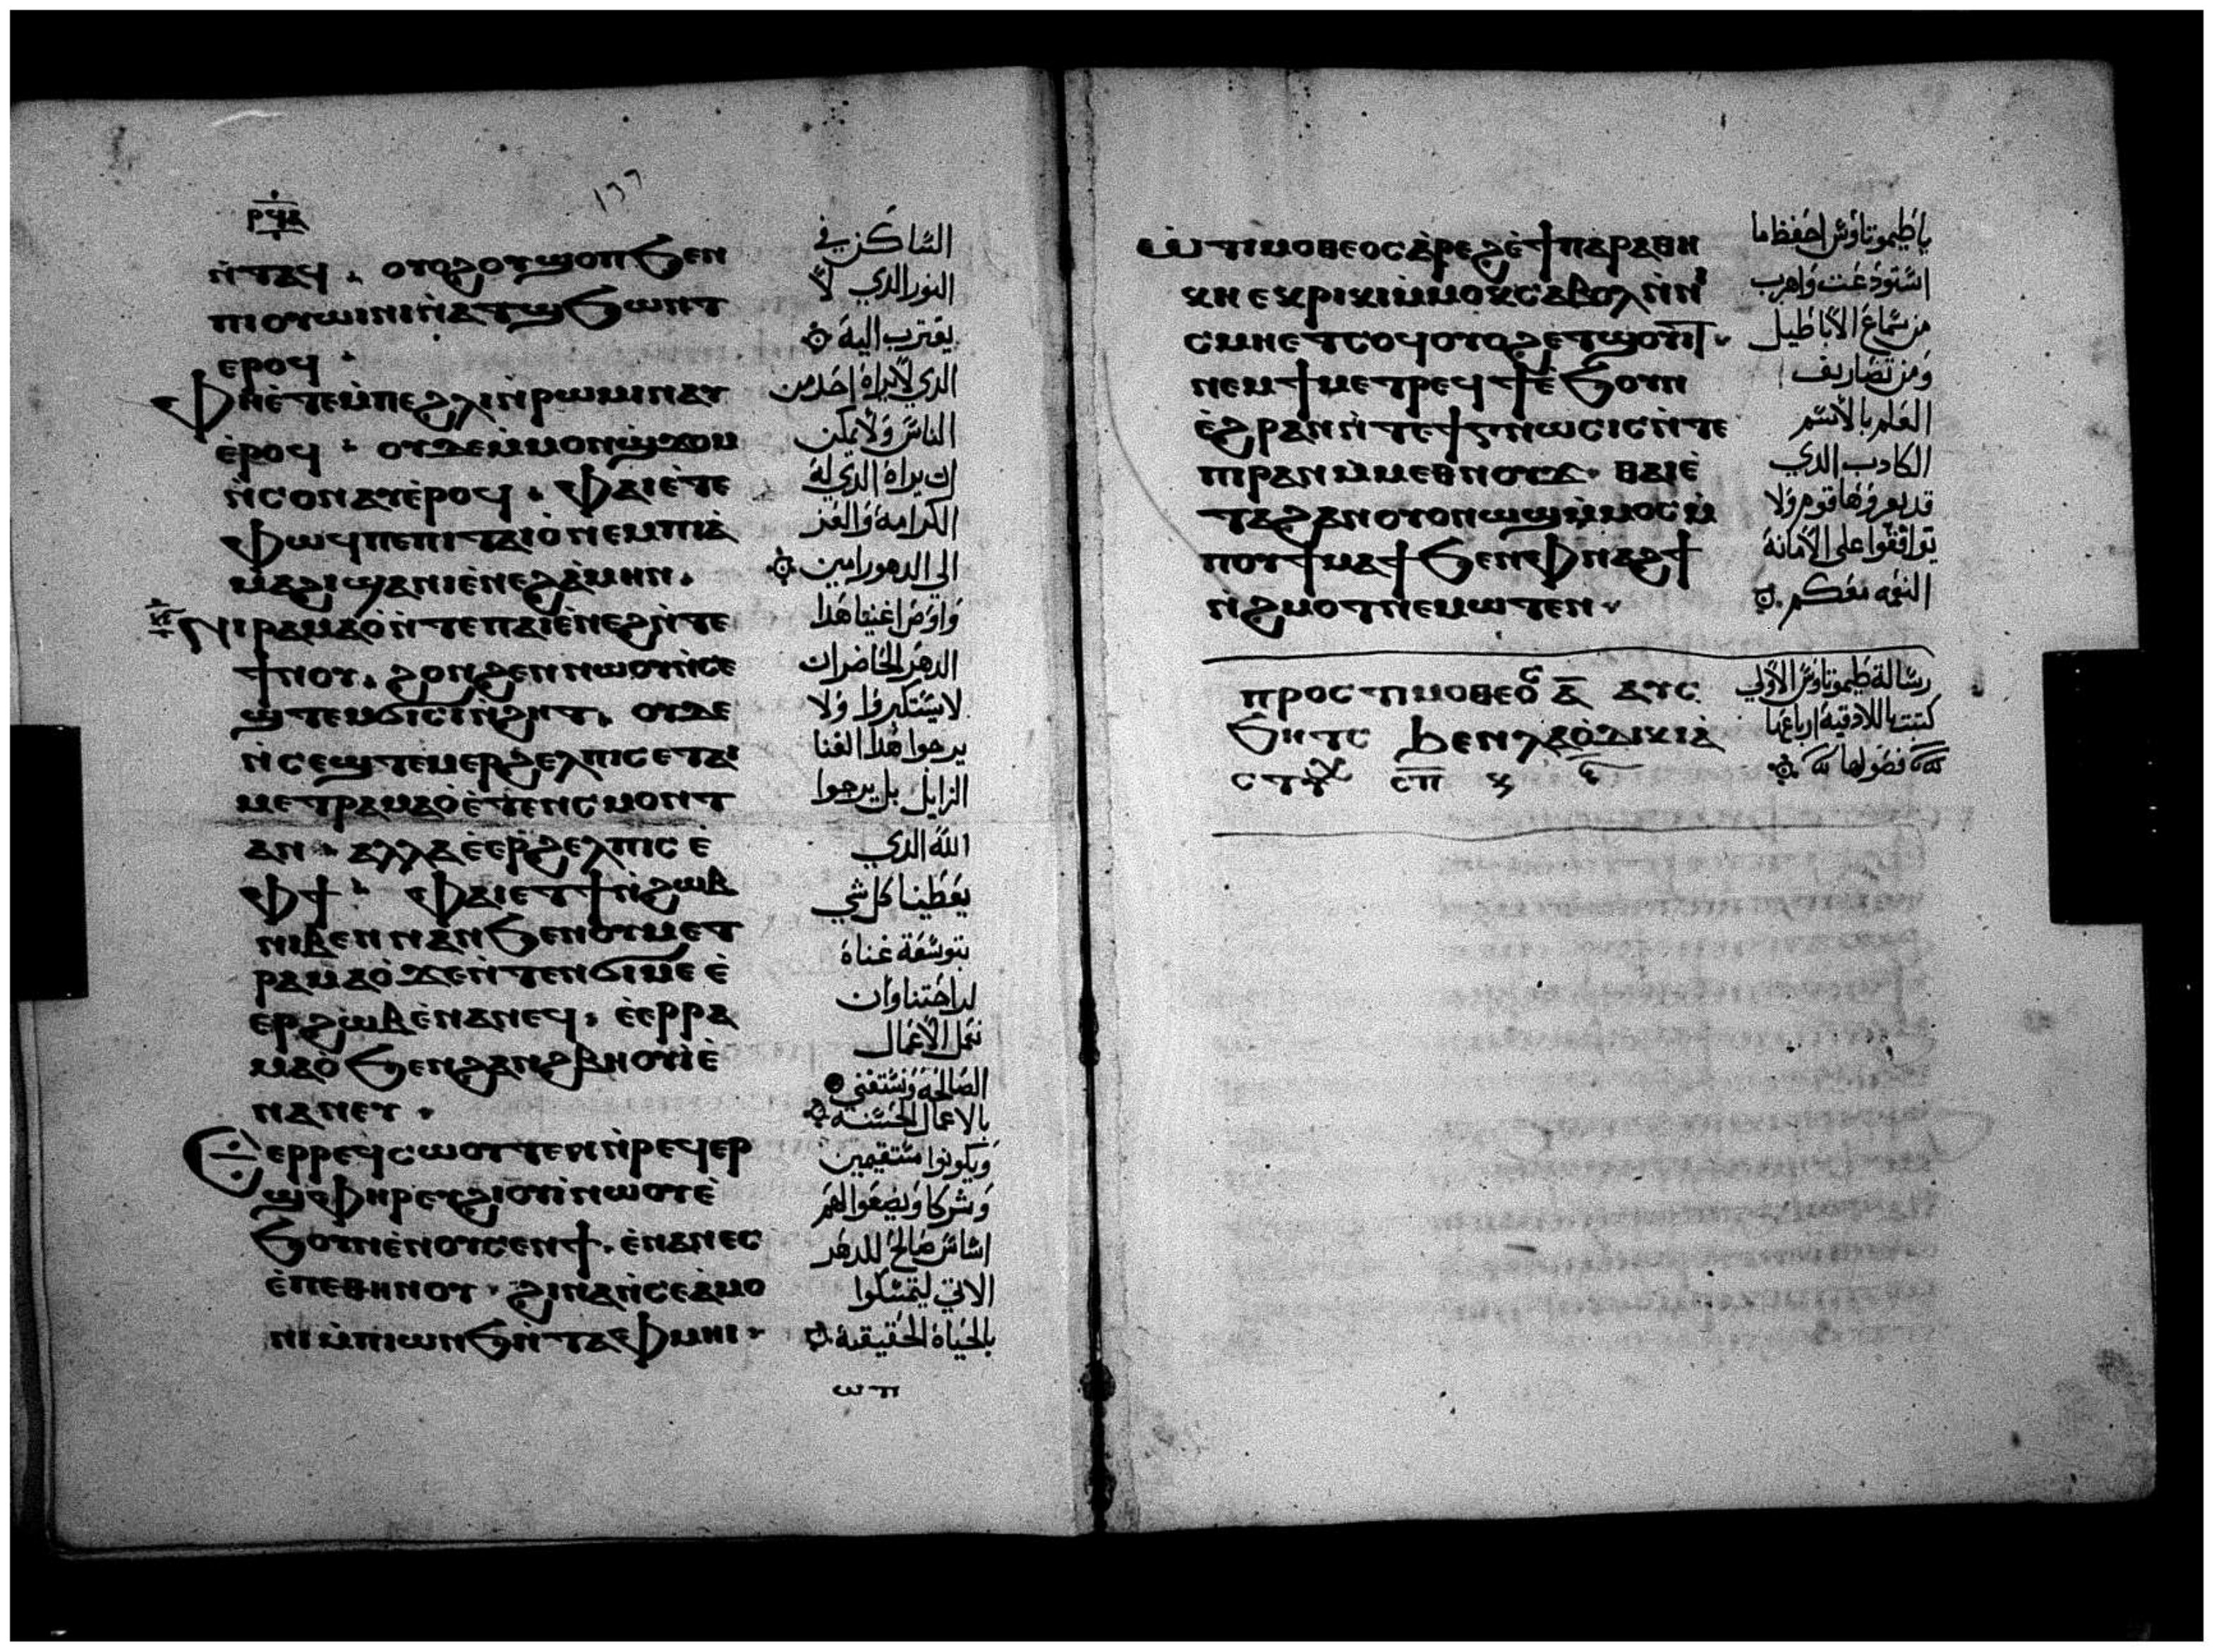 ⲣϥⲁ
١٦٦
ⲛ̀ⲧⲁϥ . ⲟⲩⲟϩⲟⲩϣⲟⲡϧⲉⲛ
ⲡⲓⲟⲩⲱⲓⲛⲓⲛ̀ⲁⲧϣϧⲱⲛⲧ
ⲉⲣⲟϥ .
ⲫⲏⲉ̀ⲧⲉⲙ̀ⲡⲉϩⲗⲓⲛ̀ⲣⲱⲙⲓⲛⲁⲩ
ⲉ̀ⲣⲟϥ . ⲟⲩⲇⲉⲙ̀ⲙⲟⲛϣ̀ϫⲟⲙ
ⲛ̀ⲥⲟⲛⲁⲩⲉ̀ⲣⲟϥ . ⲫⲁⲓⲉ̀ⲧⲉ
ⲫⲱϥⲡⲉⲡⲓⲧⲁⲓⲟ̀ⲛⲉⲙⲡⲓⲁ̀
ⲙⲁϩⲓϣⲁⲛⲓⲉ̀ⲛⲉϩⲁ̀ⲙⲏⲛ .
ⲛⲓⲣⲁⲙⲁⲟ̀ⲛ̀ⲧⲉⲡⲁⲓⲉ̀ⲛⲉϩⲛ̀ⲧⲉ
ϯⲛⲟⲩ . ϩⲟⲛϩⲉⲛⲛⲱⲟⲩⲛ̀ⲥⲉ
ϣⲧⲉⲙϭⲓⲥⲓⲛ̀ϩⲏⲧ . ⲟⲩⲇⲉ
ⲛ̀ⲥⲉϣⲧⲉⲙⲉⲣϩⲉⲗⲡⲓⲥⲉⲧⲁⲓ
ⲙⲉⲧⲣⲁⲙⲁⲟ̀ⲉ̀ⲧⲉⲛⲥⲙⲟⲛⲧ
ⲁⲛ . ⲁⲗⲗⲁⲉ̀ⲉⲣϩⲉⲗⲡⲓⲥ ⲉ̀
ⲫϯ . ⲫⲁⲓⲉⲧϯⲛ̀ϩⲱⲃ
ⲛⲓⲃⲉⲛⲛⲁⲛϧⲉⲛⲟⲩⲙⲉⲧ
ⲣⲁⲙⲁⲟ̀ϫⲉⲛ̀ⲧⲉⲛϭⲓⲙⲉ ⲉ̀
ⲉⲣϩⲱⲃⲉ̀ⲛⲁⲛⲉϥ . ⲉ̀ⲉⲣⲣⲁ
ⲙⲁⲟ̀ϧⲉⲛϩⲁⲛϩⲃⲏⲟⲩⲓ̀ⲉ̀
ⲛⲁⲛⲉⲩ .
ⲉⲉⲣⲣⲉϥⲥⲱⲟⲩⲧⲉⲛⲛ̀ⲣⲉϥⲉⲣ
ϣⲫⲏⲣⲉⲩϩⲓⲟⲩⲓ̀ⲛⲱⲟⲩⲉ̀
ϧⲟⲩⲛⲉ̀ⲛⲟⲩⲥⲉⲛϯ . ⲉ̀ⲛⲁⲛⲉⲥ
ⲉ̀ⲡⲉⲑⲛⲏⲟⲩ . ϩⲓⲛⲁⲛ̀ⲥⲉⲁ̀ⲙⲟ
ⲛⲓⲙ̀ⲡⲓⲱⲛϧⲛ̀ⲧⲁⲫⲙⲏⲓ .
السَاكن في
النور الدي لا
يقترب اليه
الدي لايراه احد من
الناس ولا يمكن
ان يراه الدي له
الكرامة والعز
الي الدهور امين
واوصي اغنيا هدا
الدهر الحاضر ان
لايستكبروا ولا
يرجوا هدا الغنا
الزايل بل يرجوا
الله الدي
يعطينا كل شي
بتوسعة غناه
لراحتنا وان
نعمل الاعمال
الصالحة ونستغني
بالاعمال الحسنه
ويكونوا مستقيمين
وشركا ويضعوا لهم
اساس صالح للدهر
الاتي ليتمسكوا
بالحياة الحقيقية
ⲱ ⲧⲓ
ⲱ̀ⲧⲓⲙⲟⲑⲉⲟⲥⲁ̀ⲣⲉϩⲉ̀ϯⲡⲁⲣⲁⲑⲏ
ⲕⲏ ⲉⲕⲣⲓⲕⲓⲙ̀ⲙⲟⲕⲥⲁⲃⲟⲗⲛ̀ⲛⲓ
ⲥⲙⲏⲉⲧⲥⲟϥⲟⲩⲟϩⲉⲧϣⲟⲩⲓⲧ .
ⲛⲉⲙϯⲙⲉⲧⲣⲉϥϯⲉ̀ϧⲟⲩⲛ
ⲉ̀ϩⲣⲁⲛⲛ̀ⲧⲉϯⲅⲛⲱⲥⲓⲥⲛ̀ⲧⲉ
ⲡⲓⲣⲁⲛⲙ̀ⲙⲉⲑⲛⲟⲩϫ . ⲑⲁⲓⲉ̀
ⲧⲁϩⲁⲛⲟⲩⲟⲛⲱϣⲙ̀ⲙⲟⲥⲙ̀
ⲡⲟⲩϯⲙⲁϯϧⲉⲛⲫⲛⲁϩϯ
ⲡ̀ϩⲙⲟⲧⲛⲉⲙⲱⲧⲉⲛ .
ياطيموتاوس احفظ ما
استودعت واهرب
من سماع الاباطيل
ومن تصاريف
العلم بالاسم
الكادب الدي
قد يعرفها قوم ولا
توافقوا علي الامانة
النعمه معكم
ⲡⲣⲟⲥ ⲧⲓⲙⲟⲑⲉⲟⲥ ⲁ̅ ⲁⲩⲥ
ϧⲏⲧⲥ ϧⲉⲛⲗⲁⲟ̀ⲇⲓⲕⲓⲁ̀
ⲥⲧⲩⲭ ⲥⲡ
رسالة طيموتاوس الاولي
كتبت باللادقية ارباعها
فصولها